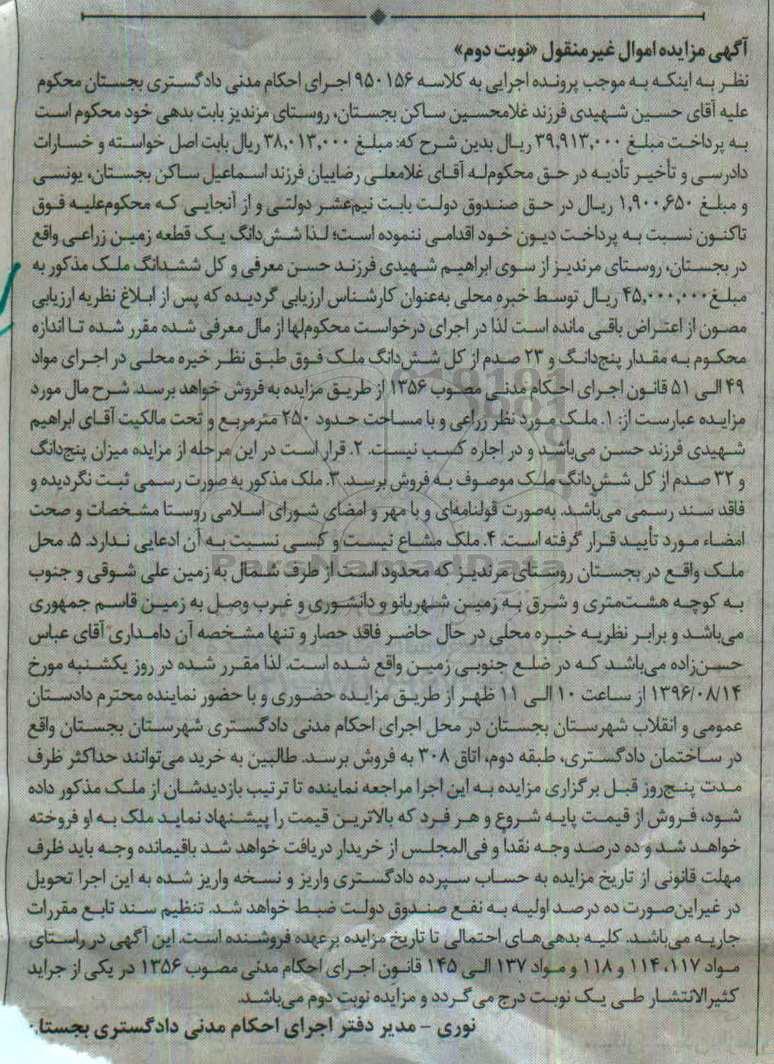 آگهی مزایده اموال غیرمنقول «نوبت دوم»
نظر به اینکه به موجب پرونده اجرایی به کلاسه ۹۵۰۱۵۶ اجرای احکام مدنی دادگستری بجستان محکوم
علیه آقای حسین شهیدی فرزند غلامحسین ساکن بجستان، روستای مزندیز بابت بدهی خود محکوم است
به پرداخت مبلغ ۳۹,۹۱۳,۰۰۰ ریال بدین شرح که: مبلغ ۳۸,۰۱۳,۰۰۰ ریال بابت اصل خواسته و خسارات
دادرسی و تأخیر تأدیه در حق محکوم‌له آقای غلامعلی رضاییان فرزند اسماعیل ساکن بجستان، یونسی
و مبلغ ۱,۹۰۰,۶۵۰ ریال در حق صندوق دولت بابت نیم‌عشر دولتی و از آنجایی که محکوم‌علیه فوق
تاکنون نسبت به پرداخت دیون خود اقدامی ننموده است؛ لذا شش‌دانگ یک قطعه زمین زراعی واقع
در بجستان، روستای مرندیز از سوی ابراهیم شهیدی فرزند حسن معرفی و کل ششدانگ ملک مذکور به
مبلغ ۴۵,۰۰۰,۰۰۰ ریال توسط خبره محلی به‌عنوان کارشناس ارزیابی گردیده که پس از ابلاغ نظریه ارزیابی
مصون از اعتراض باقی مانده است لذا در اجرای درخواست محکوم‌لها از مال معرفی شده مقرر شده تا اندازه
محکوم به مقدار پنج‌دانگ و ۲۳ صدم از کل شش‌دانگ ملک فوق طبق نظر خیره محلی در اجرای مواد
۴۹ الی ۵۱ قانون اجرای احکام مدنی مصوب ۱۳۵۶ از طریق مزایده به فروش خواهد برسد. شرح مال مورد
مزایده عبارست از: ۱. ملک مورد نظر زراعی و با مساحت حدود ۲۵۰ مترمربع و تحت مالکیت آقای ابراهیم
شهیدی فرزند حسن می‌باشد و در اجاره کسب نیست. ۲. قرار است در این مرحله از مزایده میزان پنج‌دانگ
و ۳۲ صدم از کل شش‌دانگ ملک موصوف به فروش برسد. ۳. ملک مذکور به صورت رسمی ثبت نگردیده و
فاقد سند رسمی می‌باشد. به‌صورت قولنامه‌ای و با مهر و امضای شورای اسلامی روستا مشخصات و صحت
امضاء مورد تأیید قرار گرفته است. ۴. ملک مشاع نیست و کسی نسبت به آن ادعایی ندارد. ۵. محل
ملک واقع در بجستان روستای مرندیز که محدود است از طرف شمال به زمین علی شوقی و جنوب
به کوچه هشت‌متری و شرق به زمین شهربانو و دانشوری و غرب وصل به زمین قاسم جمهوری
می‌باشد و برابر نظریه خبره محلی در حال حاضر فاقد حصار و تنها مشخصه آن دامداری آقای عباس
حسن‌زاده می‌باشد که در ضلع جنوبی زمین واقع شده است. لذا مقرر شده در روز یکشنبه مورخ
۱۳۹۶/۰۸/۱۴ از ساعت ۱۰ الی ۱۱ ظهر از طریق مزایده حضوری و با حضور نماینده محترم دادستان
عمومی و انقلاب شهرستان بجستان در محل اجرای احکام مدنی دادگستری شهرستان بجستان واقع
در ساختمان دادگستری، طبقه دوم، اتاق ۳۰۸ به فروش برسد. طالبین به خرید می‌توانند حداکثر ظرف
مدت پنج‌روز قبل برگزاری مزایده به این اجرا مراجعه نماینده تا ترتیب بازدیدشان از ملک مذکور داده
شود، فروش از قیمت پایه شروع و هر فرد که بالاترین قیمت را پیشنهاد نماید ملک به او فروخته
خواهد شد و ده درصد وجه نقداً و فی‌المجلس از خریدار دریافت خواهد شد باقیمانده وجه باید ظرف
مهلت قانونی از تاریخ مزایده به حساب سپرده دادگستری واریز و نسخه واریز شده به این اجرا تحویل
در غیراین‌صورت ده درصد اولیه به نفع صندوق دولت ضبط خواهد شد. تنظیم سند تابع مقررات
جاریه می‌باشد. کلیه بدهی‌های احتمالی تا تاریخ مزایده برعهده فروشنده است. این آگهی در راستای
مواد ۱۱۷، ۱۱۴ و ۱۱۸ و مواد ۱۳۷ الی ۱۴۵ قانون اجرای احکام مدنی مصوب ۱۳۵۶ در یکی از جراید
کثیرالانتشار طی یک نوبت درج می‌گردد و مزایده نوبت دوم می‌باشد.
نوری - مدیر دفتر اجرای احکام مدنی دادگستری بجستان
ParsNamadData